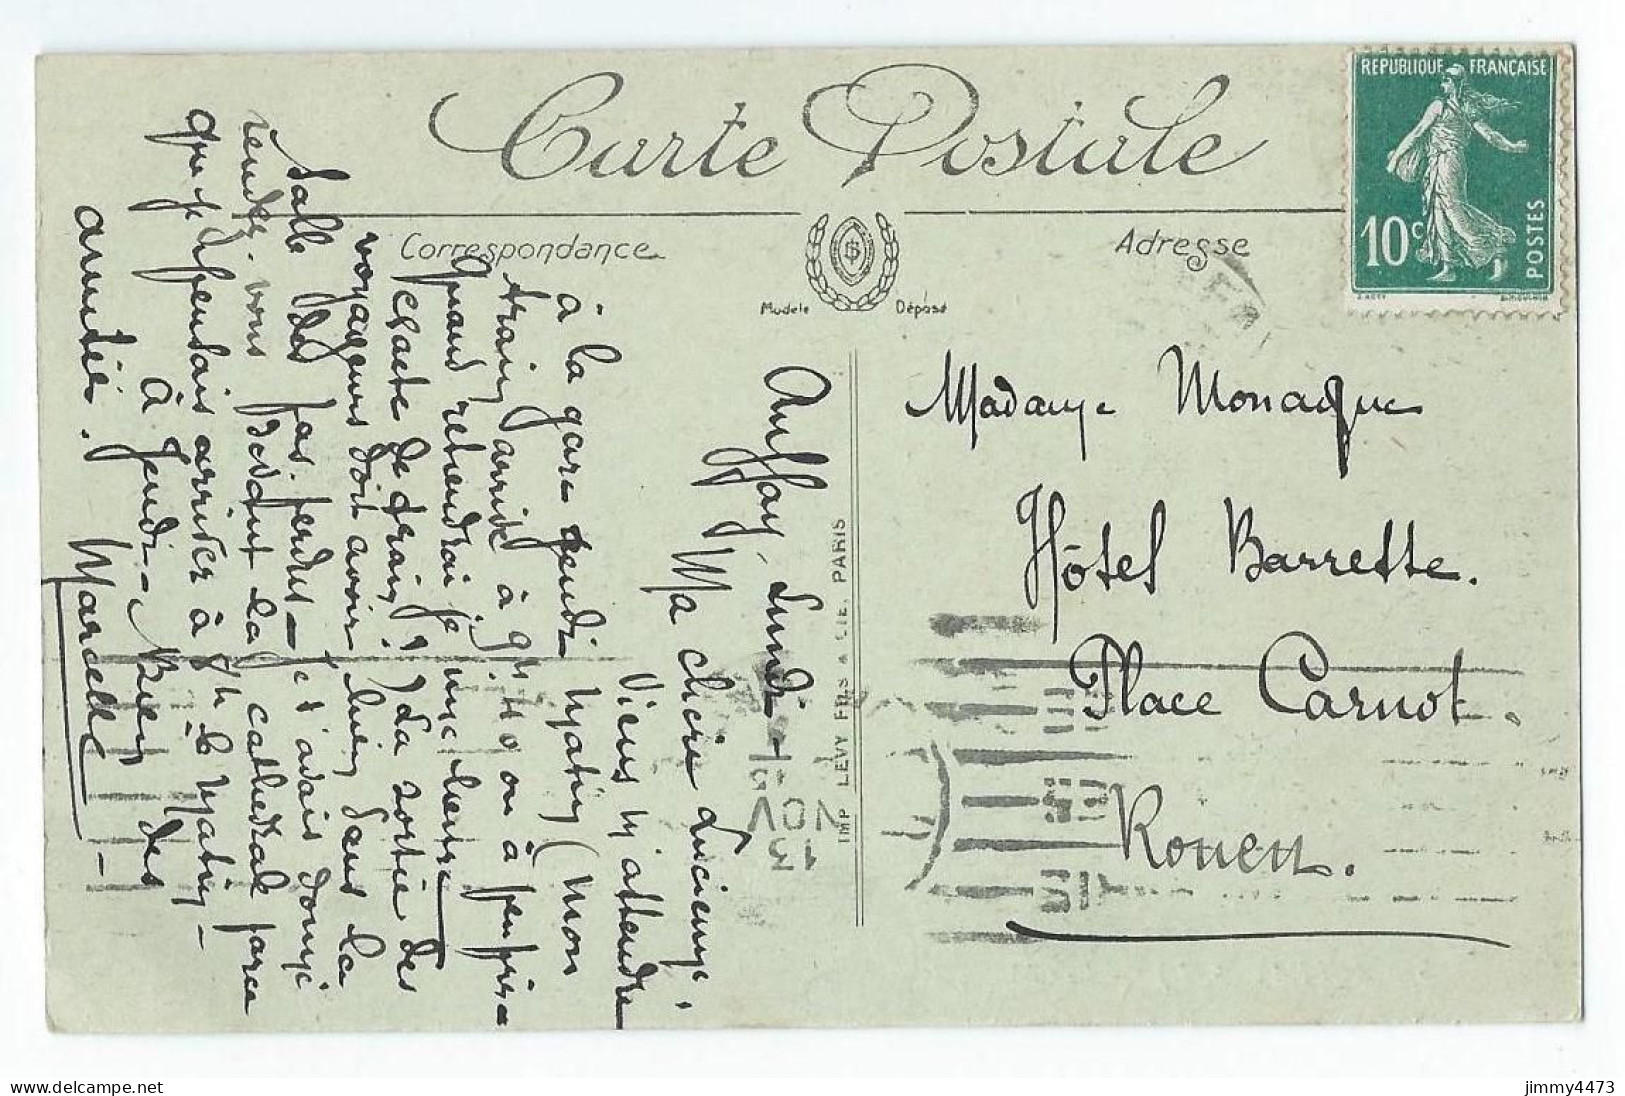 Carte Postale
Correspondance
Adresse
Modèle Déposé
REPUBLIQUE FRANÇAISE
10c
POSTES
IMP. LEVY FILS & CIE, PARIS
Auffay, Lundi -
Ma chère Lucienne,
Viens m'attendre
à la gare jeudi matin (mon
train arrive à 9h.40 ou à peu près
Quand retiendrai je une heure
exacte de train ?) La sortie des
voyageurs doit avoir lieu dans la
salle des pas-perdus - Je t'avais donné
rendez-vous devant la cathédrale parce
que je pensais arriver à 8h le matin -
A jeudi - Bien des
amitiés. Marcelle -
Madame Monacque
Hôtel Barrette.
Place Carnot.
Rouen.
13
NOV
jimmy4473